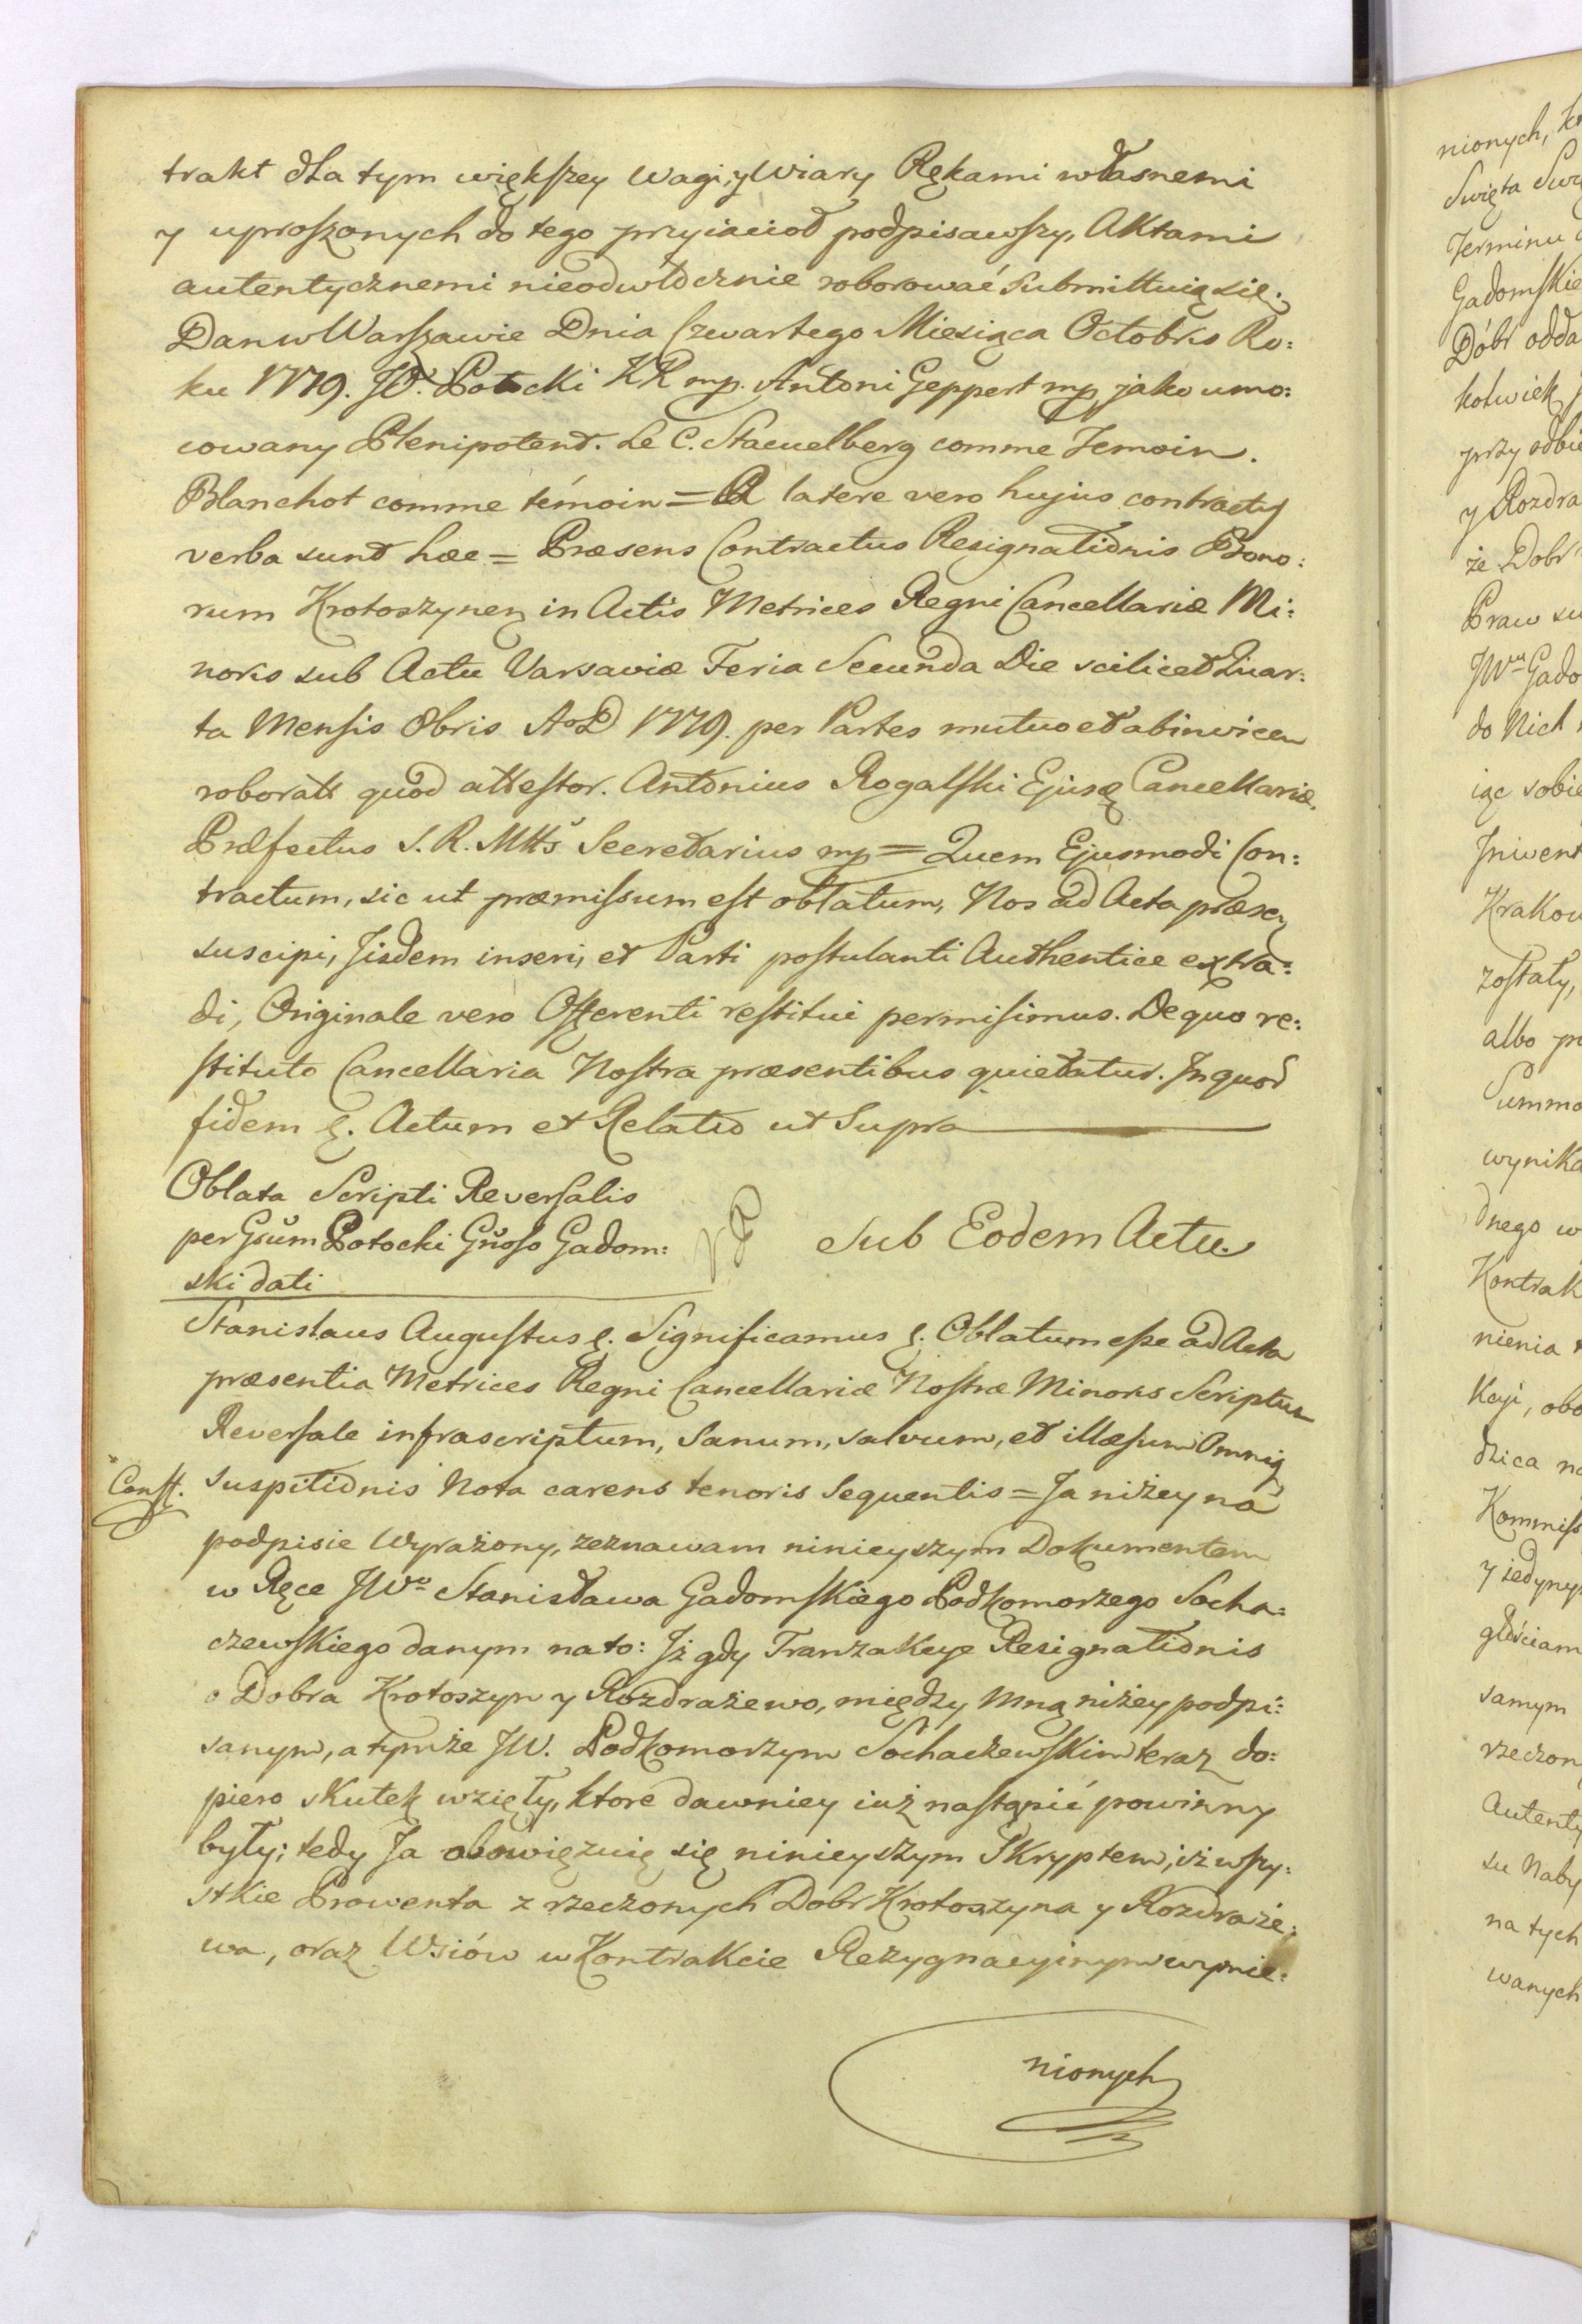 trakt dla tym większey Wagi, y Wiary Rękami własnemi
y uproszonych do tego przyiacioł podpisawszy, Aktami
autentycznemi nieodwłocznie roborować Submittuią się.
Dan w Warszawie Dnia Czwartego Miesiąca Octobris Ro:
ku 1779. Potocki KR mp. Antoni Geppert mp jako umo:
cowany Plenipotent. Le C. Stacuelberg comme Temoin.
Blanchot comme témoin = A latere vero hujus contractus
verba sunt hæc = Præsens Contractus Resignationis Bono:
rum Krotoszynen in Actis Metrices Regni Cancellariæ Mi:
noris sub Actu Varsaviæ Feria Secunda Die scilicet Quar:
ta Mensis Obris AoD 1779. per Partes mutuo et abinvicem
roboratt quod attestor. Antonius Rogalski Ejusq Cancellariæ
Præfectus S. R. Mtts Secretarius mp = Quem Ejusmodi Con:
tractum, sic ut præmissum est oblatum, Nos ad Acta præsen
suscipi, Iisdem inseri, et Parti postulanti Authentice extra:
di, Originale vero Offerenti restitui permisimus. De quo re:
stituto Cancellaria Nostra præsentibus quietatur. In quor
fidem &. Actum et Relatio ut Supra
Oblata Scripti Reversalis
per Gsum Potocki Gnoso Gadom:
ski dati
Sub Eodem Actu.
Stanislaus Augustus &. Significamus &. Oblatum esse ad Acta
præsentia Metrices Regni Cancellariæ Nostræ Minoris Scriptum
Reversale infrascriptum, Sanum, salvum, et illæsum Omniq
Const. suspitionis Nota carens tenoris Sequentis = Ja niżey na
podpisie Wyrażony, zeznawam ninieyszym Dokumentem
w Ręce JWo Stanisława Gadomskiego Podkomorzego Socha:
czewskiego danym na to: Iż gdy Tranzakcye Resignationis
o Dobra Krotoszyn y Rozdrażewo, między Mną niżey podpi:
sanym, a tymże JW. Podkomorzym Sochaczewskim teraz do:
piero skutek wzięły, ktore dawniey iuż nastąpić powinny
były; tedy Ja obowięzuię się ninieyszym Skryptem, iż wszy:
stkie Prowenta z rzeczonych Dobr Krotoszyna y Rozdraże:
wa, oraz Wsiów w Kontrakcie Rezygnacyinym wymie:
nionych
nionych,
Swięta
Terminu
Gadomskie
Dóbr odda
kotwiek
przy odbie
y Rozdra
że Dobr
Praw su
JWu Gado
do Nich
iąc sobie
Inwent
Krakow
zostały,
albo
Summo
wynika
dnego w
Kontrak
nienia
Kcyi, obo
dzica na
Kommiss
y iedyny
głościam
samym
rzeczon
Autenty
su Naby
na tych
wanych